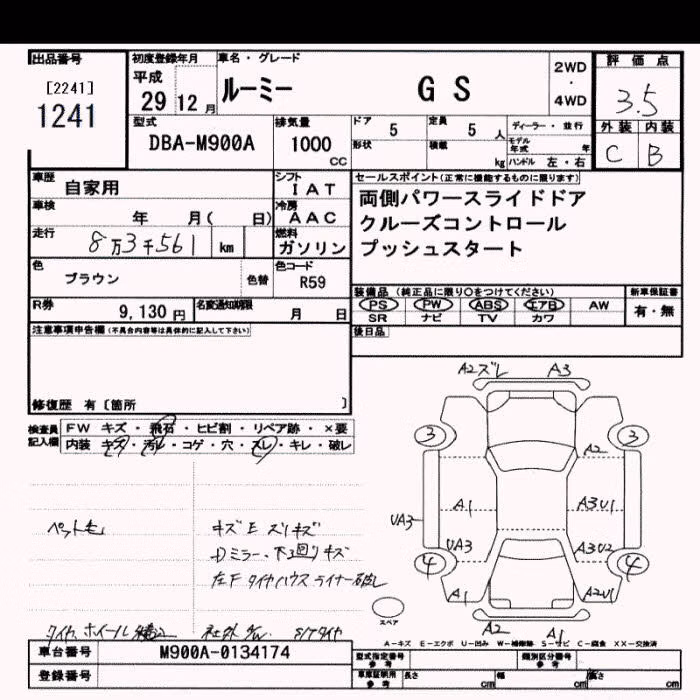 出品番号
[2241]
1241
初度登録年月
平成
29 12 月
車名・グレード
ルーミー G S
2WD
・
4WD
評価点
3.5
外装 内装
C B
型式
DBA-M900A
排気量
1000
CC
ドア 5
定員 5 人
ディーラー・並行
形状
積載 kg
モデル年式 年
ハンドル 左・右
車歴
自家用
シフト
IAT
車検
年 月( 日)
冷房
AAC
走行
8万3千561 km
燃料
ガソリン
色
ブラウン
色替
色コード
R59
R券
9,130 円
名変通知期限
月 日
セールスポイント(正常に機能するものに限ります)
両側パワースライドドア
クルーズコントロール
プッシュスタート
装備品(純正品に限り○をつけてください)
PS PW ABS エアB AW
SR ナビ TV カワ
新車保証書
有・無
後日品
注意事項申告欄(不具合内容等は具体的に記入して下さい)
修復歴 有〔箇所 〕
検査員
記入欄
FW キズ・飛石・ヒビ割・リペア跡・×要
内装 キズ・汚レ・コゲ・穴・スレ・キレ・破レ
A2ズレ A3
3 3
A2
A1 A3U1
UA3
UA3 A3U2
4 4
A1 A2U1
A2 A1
スペア
ペット毛
キズE ズリキズ
Dミラー、下回りキズ
左F タイヤハウスライナー破レ
A-キズ E-エクボ U-凹み W-補修跡 S-サビ C-腐食 XX-交換済
車台番号
M900A-0134174
登録番号
型式指定番号
参考
類別区分番号
参考
車庫証明用
参考
長さ cm
幅 cm
高さ cm